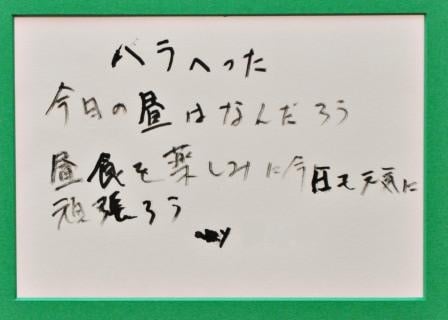 ハラへった
今日の昼はなんだろう
昼食を楽しみに今日も元気に
頑張ろう